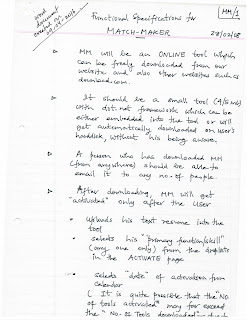 Functional Specifications for
MM/1
MATCH-MAKER
28/02/08
MM will be an ONLINE tool which
can be freely downloaded from our
website and also other websites such as
download.com.
It should be a small tool (4/5 mb)
with dot net framework which can be
either embedded into the tool or will
get automatically downloaded on user's
harddisk, without his being aware.
A person who has downloaded MM
(from anywhere) should be able to
email it to any no. of people.
After downloading, MM will get
"activated" only after the User
Uploads his text resume into the
tool
selects his "primary function/skill"
(any one only) from the droplist
in the ACTIVATE page
selects "date" of activation from
calendar
( It is quite possible that the "No.
of tools activated" may far exceed
the "No. of Tools downloaded"